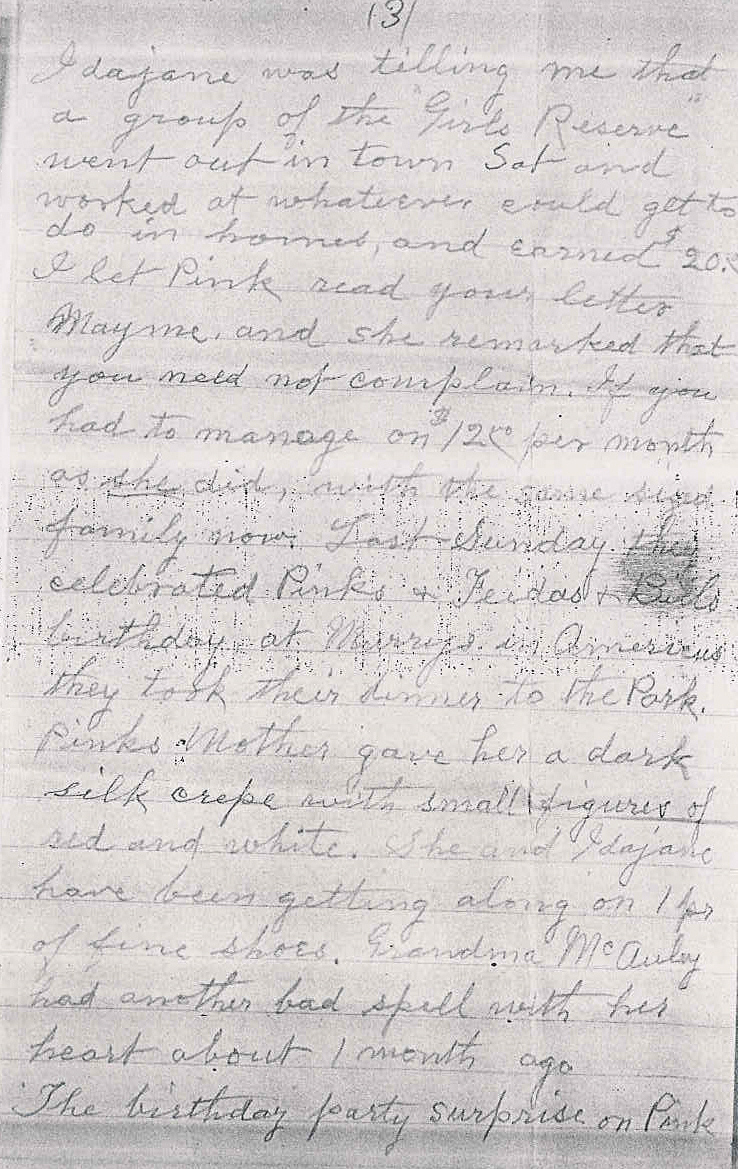 (3)
Idajane was tilling me that
a group of the "Girls Reserve"
went out in town Sat and
worked at whatever could get to
do in homes, and earned $20.
I let Pink read your letter
Mayme. and she remarked that
you need not complain. If you
had to manage on $12 per month
as she did, with the same sized
family now. Last Sunday they
celebrated Pinks + Feidas + Bills
birthday, at Murrys. in Americus
they took their dinner to the Park.
Pinks Mother gave her a dark
silk crepe with small figures of
red and white. She and Idajane
have been getting along on 1 pr
of fine shoes. Grandma McAuley
had another bad spell with her
heart about 1 month ago
The birthday party surprise on Pink